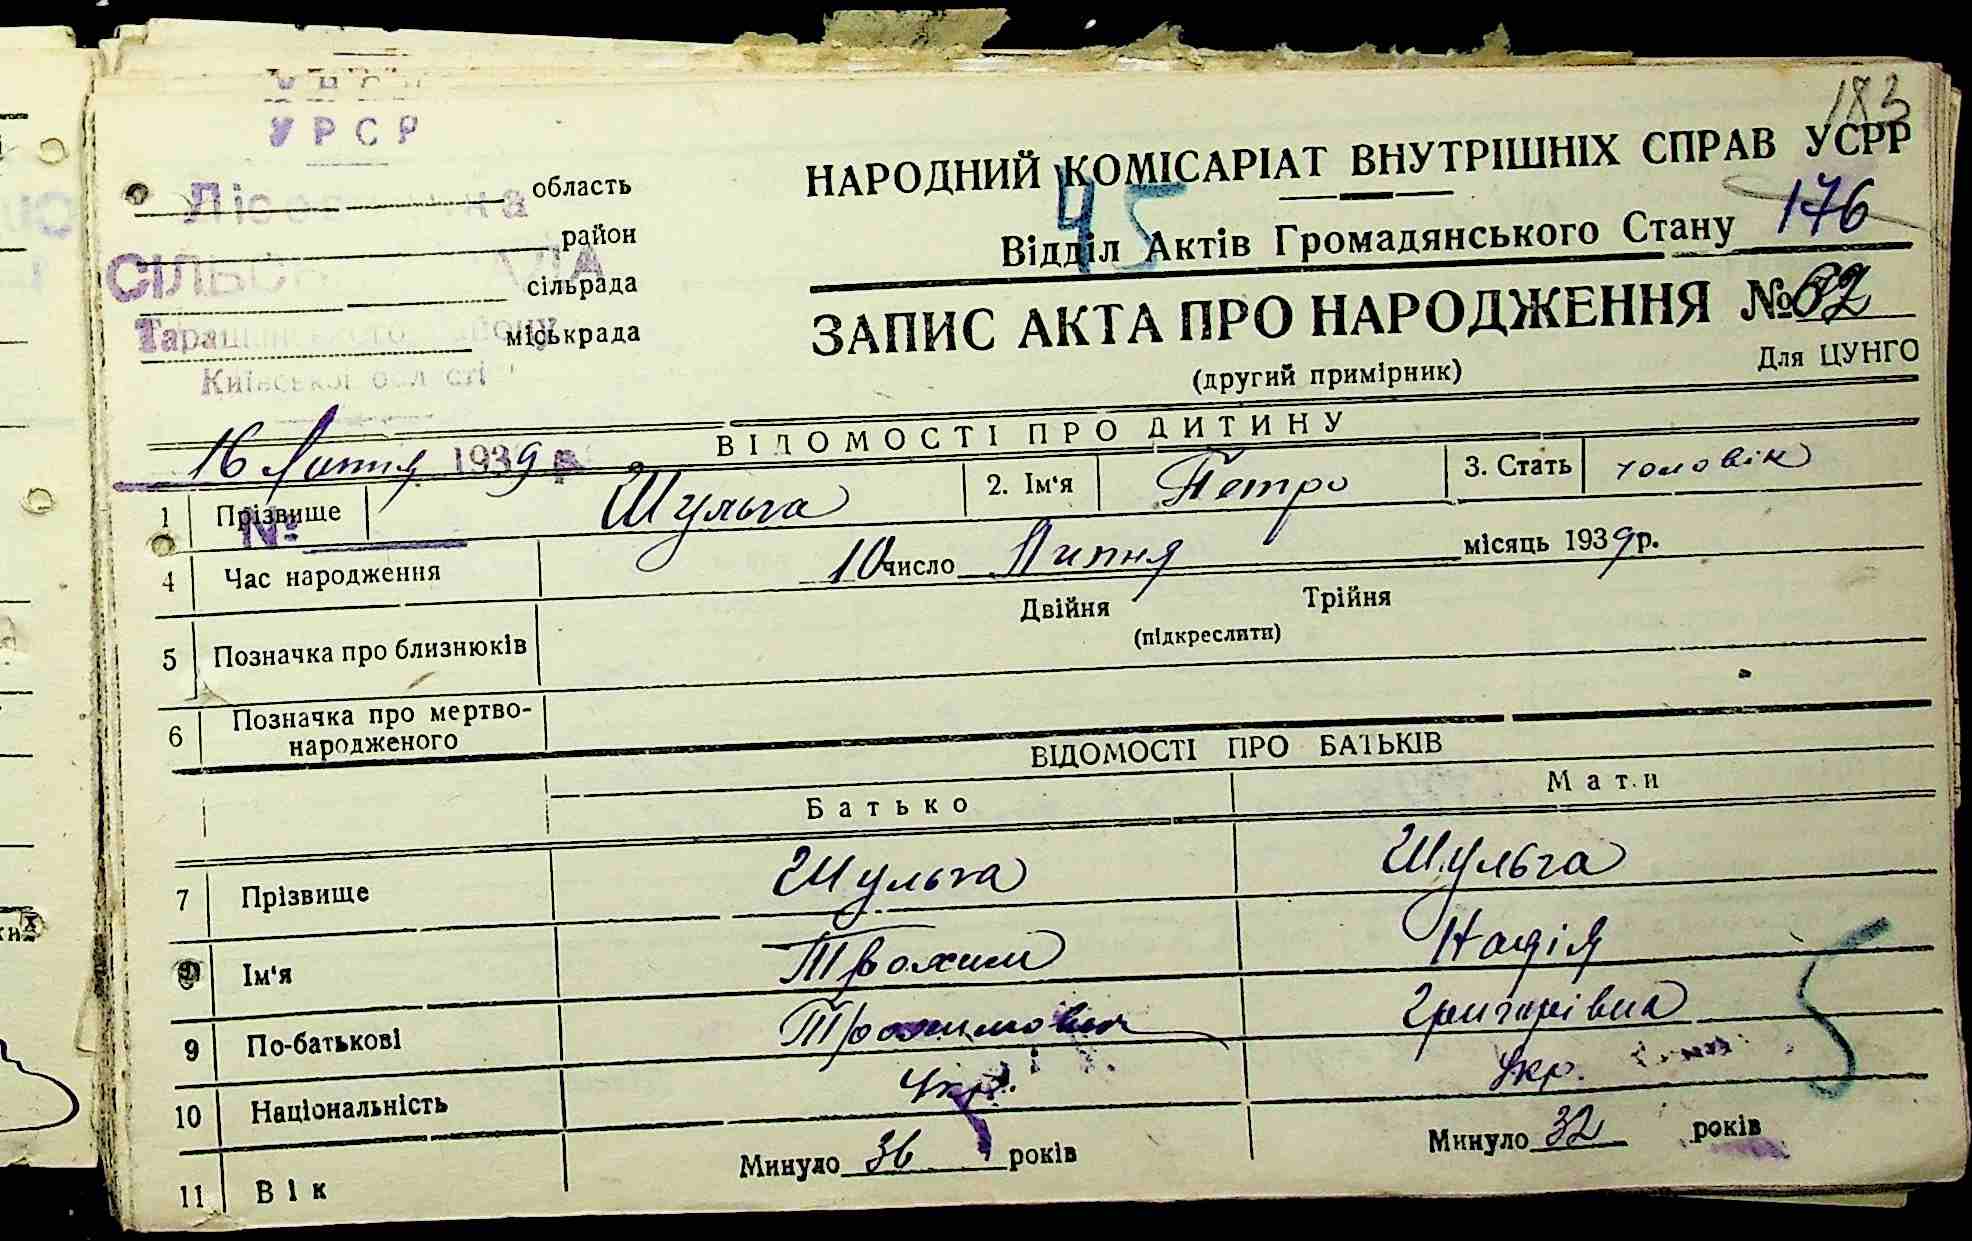 183
УРСР
НАРОДНИЙ КОМІСАРІАТ ВНУТРІШНІХ СПРАВ УСРР
область
район
сільрада
міськрада
45
Відділ Актів Громадянського Стану 176
ЗАПИС АКТА ПРО НАРОДЖЕННЯ № 62
(другий примірник)
Для ЦУНГО
Таращанського району
Київської області
16 Липня 1939 р.
№
ВІДОМОСТІ ПРО ДИТИНУ
1 Прізвище Шульга 2. Ім'я Петро 3. Стать чоловік
4 Час народження 10 число Липня місяць 1939 р.
5 Позначка про близнюків Двійня Трійня
(підкреслити)
6 Позначка про мертво-
народженого
ВІДОМОСТІ ПРО БАТЬКІВ
Батько Мати
7 Прізвище Шульга Шульга
Ім'я Трохим Надія
9 По-батькові Трохимович Григорівна
10 Національність Укр. Укр.
11 Вік Минуло 36 років Минуло 32 років
5